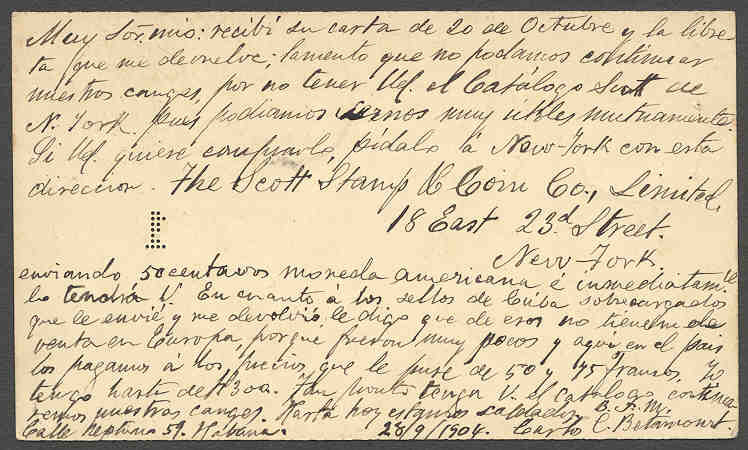 Muy Sor. mio: recibí su carta de 20 de Octubre y la libre-
ta que me devuelve; lamento que no podamos continuar
nuestros canges, por no tener Ud. el Catálogo Scott de
N. York. pues podiamos sernos muy útiles mutuamente.
Si Ud. quiere comprarlo, pídalo á New-York con esta
direccion. The Scott Stamp & Coin Co., Limited,
18 East 23d. Street.
New York.
enviando 50 centavos moneda americana é inmediatamte.
lo tendrá V. En cuanto á los sellos de Cuba sobrecargados
que le envié y me devolvió le digo que de esos no tienen de
venta en Europa, porque fueron muy pocos y aqui en el pais
los pagamos á los precios que le puse de 50 y 75 francos, yo
tengo hasta de 300. Tan pronto tenga V. el catálogo continua-
remos nuestros canges. Hasta hoy estamos saldados. B. S. M.
Calle Neptuno 59. Habana. 28/9/1904. Carlos C. Betancourt.